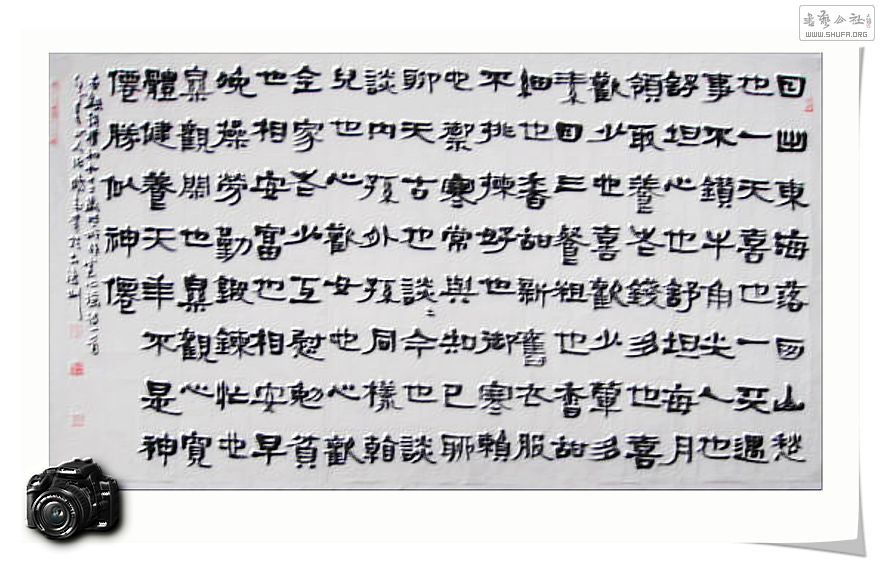 日出東海落西山愁
也一天喜也一天遇
事不鑽牛角尖人也
舒坦心也舒坦每月
領取養老錢多也喜
歡少也喜歡少葷多
素日三餐粗也香甜
細也香甜新舊衣服
不挑揀好也御寒賴
也禦寒常與知己聊
聊天古也談〻今也談
談内孫外孫同樣
兒也心歡女也心歡
全家老少互慰勉貧
也相安富也相安早
晚操勞勤鍛鍊忙也
樂觀閑也樂觀心寬
體健養天年不是神
僊勝似神僊
右趙樸初九十二歲時所作寬心謠一首
WWW.SHUFA.ORG